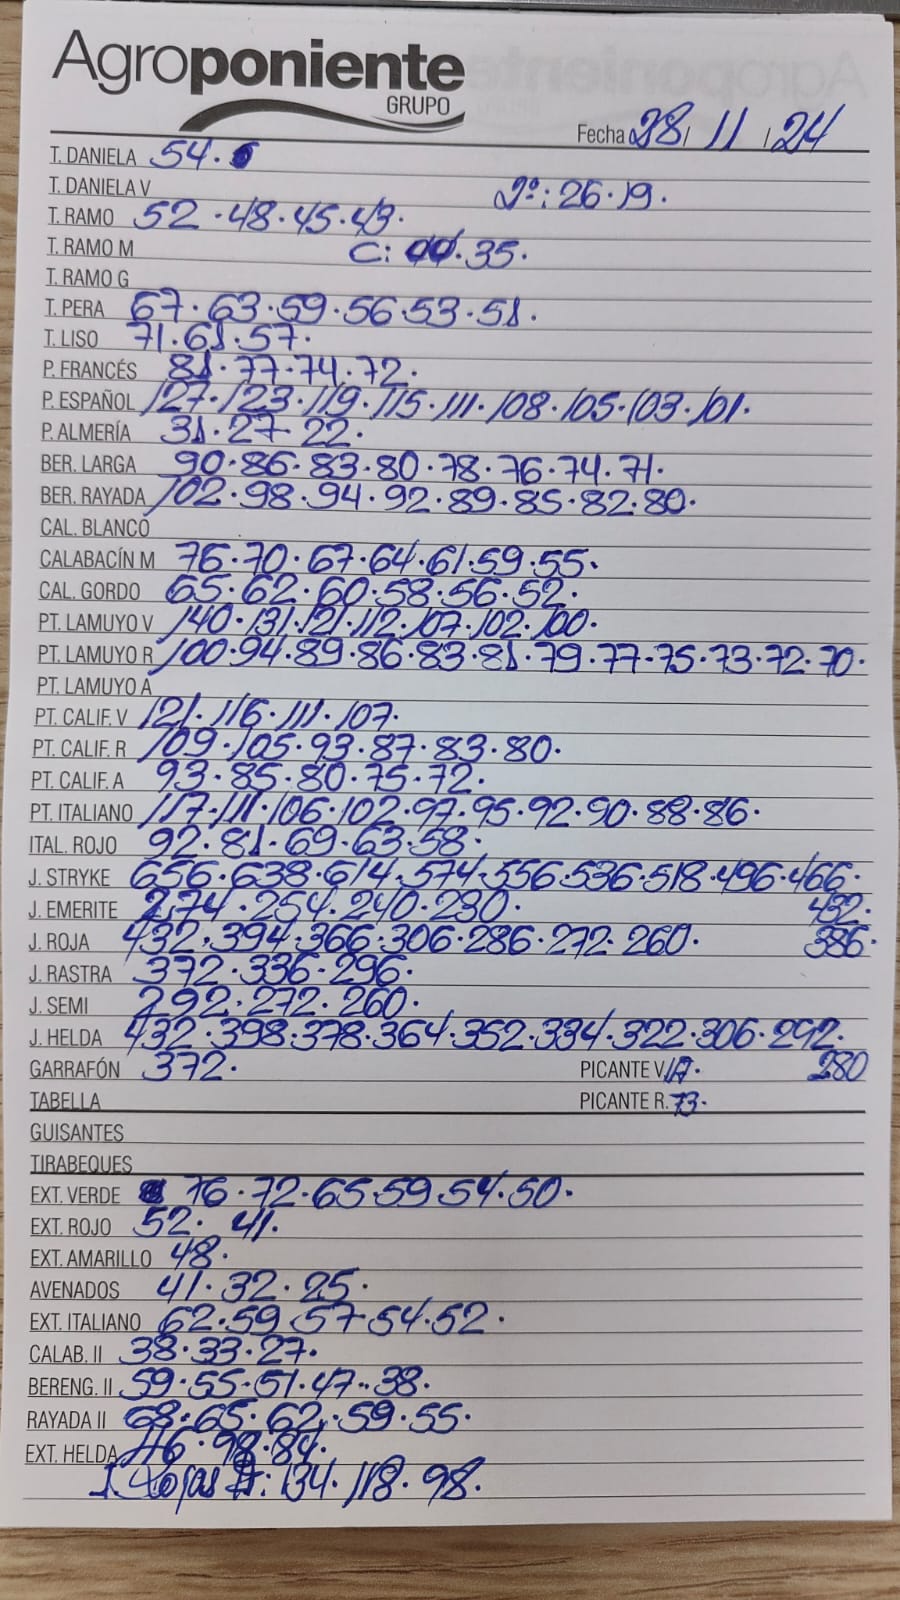 Agroponiente
GRUPO
Fecha 28/ 11 /24
T. DANIELA 54.
T. DANIELA V 2º: 26.19.
T. RAMO 52.48.45.43.
T. RAMO M C: 35.
T. RAMO G
T. PERA 67.63.59.56.53.51.
T. LISO 71.61.57.
P. FRANCÉS 81.77.74.72.
P. ESPAÑOL 127.123.119.115.111.108.105.103.101.
P. ALMERÍA 31.27.22.
BER. LARGA 90.86.83.80.78.76.74.71.
BER. RAYADA 102.98.94.92.89.85.82.80.
CAL. BLANCO
CALABACÍN M 76.70.67.64.61.59.55.
CAL. GORDO 65.62.60.58.56.52.
PT. LAMUYO V 140.131.121.112.107.102.100.
PT. LAMUYO R 100.94.89.86.83.81.79.77.75.73.72.70.
PT. LAMUYO A
PT. CALIF. V 121.116.111.107.
PT. CALIF. R 109.105.93.87.83.80.
PT. CALIF. A 93.85.80.75.72.
PT. ITALIANO 117.111.106.102.97.95.92.90.88.86.
ITAL. ROJO 92.81.69.63.58.
J. STRYKE 656.638.614.574.556.536.518.496.466.
J. EMERITE 274.254.240.230. 432.
J. ROJA 432.394.366.306.286.272.260. 386.
J. RASTRA 372.336.296.
J. SEMI 292.272.260.
J. HELDA 432.398.378.364.352.334.322.306.292.
GARRAFÓN 372. PICANTE V. 280
TABELLA PICANTE R. 73.
GUISANTES
TIRABEQUES
EXT. VERDE 76.72.65.59.54.50.
EXT. ROJO 52. 41.
EXT. AMARILLO 48.
AVENADOS 41.32.25.
EXT. ITALIANO 62.59.57.54.52.
CALAB. II 38.33.27.
BERENG. II 59.55.51.47.38.
RAYADA II 68.65.62.59.55.
EXT. HELDA 116.98.84.
134.118.98.